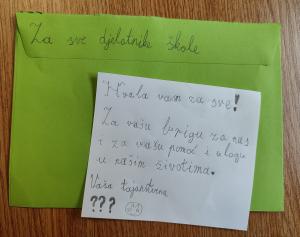 Za sve djelatnike škole
Hvala vam za sve!
Za vašu brigu za nas
i za vašu pomoć i ulogu
u našim životima.
Vaša tajanstvena
???